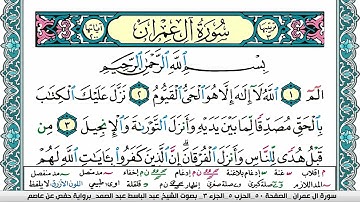 سُورَةُ آلِ عِمْرَانَ
بِسْمِ اللَّهِ الرَّحْمَٰنِ الرَّحِيمِ
الٓمٓ ١ اللَّهُ لَآ إِلَٰهَ إِلَّا هُوَ الْحَيُّ الْقَيُّومُ ٢ نَزَّلَ عَلَيْكَ الْكِتَٰبَ
بِالْحَقِّ مُصَدِّقًا لِّمَا بَيْنَ يَدَيْهِ وَأَنزَلَ التَّوْرَىٰةَ وَالْإِنجِيلَ ٣ مِن
قَبْلُ هُدًى لِّلنَّاسِ وَأَنزَلَ الْفُرْقَانَ إِنَّ الَّذِينَ كَفَرُوا بِـَٔايَٰتِ اللَّهِ لَهُمْ
إقلاب غنة إدغام بلاغنة إدغام إخفاء
المد اللازم
سورة آل عمران . الصفحة ٥٠ . الحزب ٥ . الجزء ٣ . بصوت الشيخ عبد الباسط عبد الصمد . برواية حفص عن عاصم